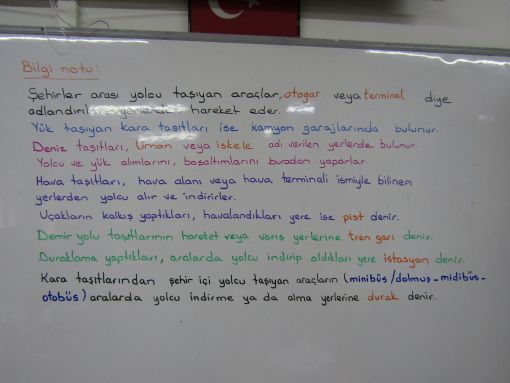 Bilgi notu:
Şehirler arası yolcu taşıyan araçlar, otogar veya terminal diye
adlandırılan yerlerden hareket eder.
Yük taşıyan kara taşıtları ise kamyon garajlarında bulunur.
Deniz taşıtları, liman veya iskele adı verilen yerlerde bulunur.
Yolcu ve yük alımlarını, boşaltımlarını buradan yaparlar.
Hava taşıtları, hava alanı veya hava terminali ismiyle bilinen
yerlerden yolcu alır ve indirirler.
Uçakların kalkış yaptıkları, havalandıkları yere ise pist denir.
Demir yolu taşıtlarının hareket veya varış yerlerine tren garı denir.
Duraklama yaptıkları, aralarda yolcu indirip aldıkları yere istasyon denir.
Kara taşıtlarından şehir içi yolcu taşıyan araçların (minibüs/dolmuş-midibüs-
otobüs) aralarda yolcu indirme ya da alma yerlerine durak denir.